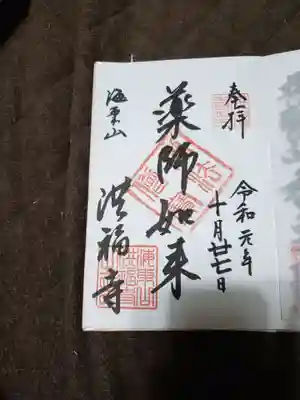 奉拝
令和元年
十月廿七日
薬師如来
海東山
洪福寺